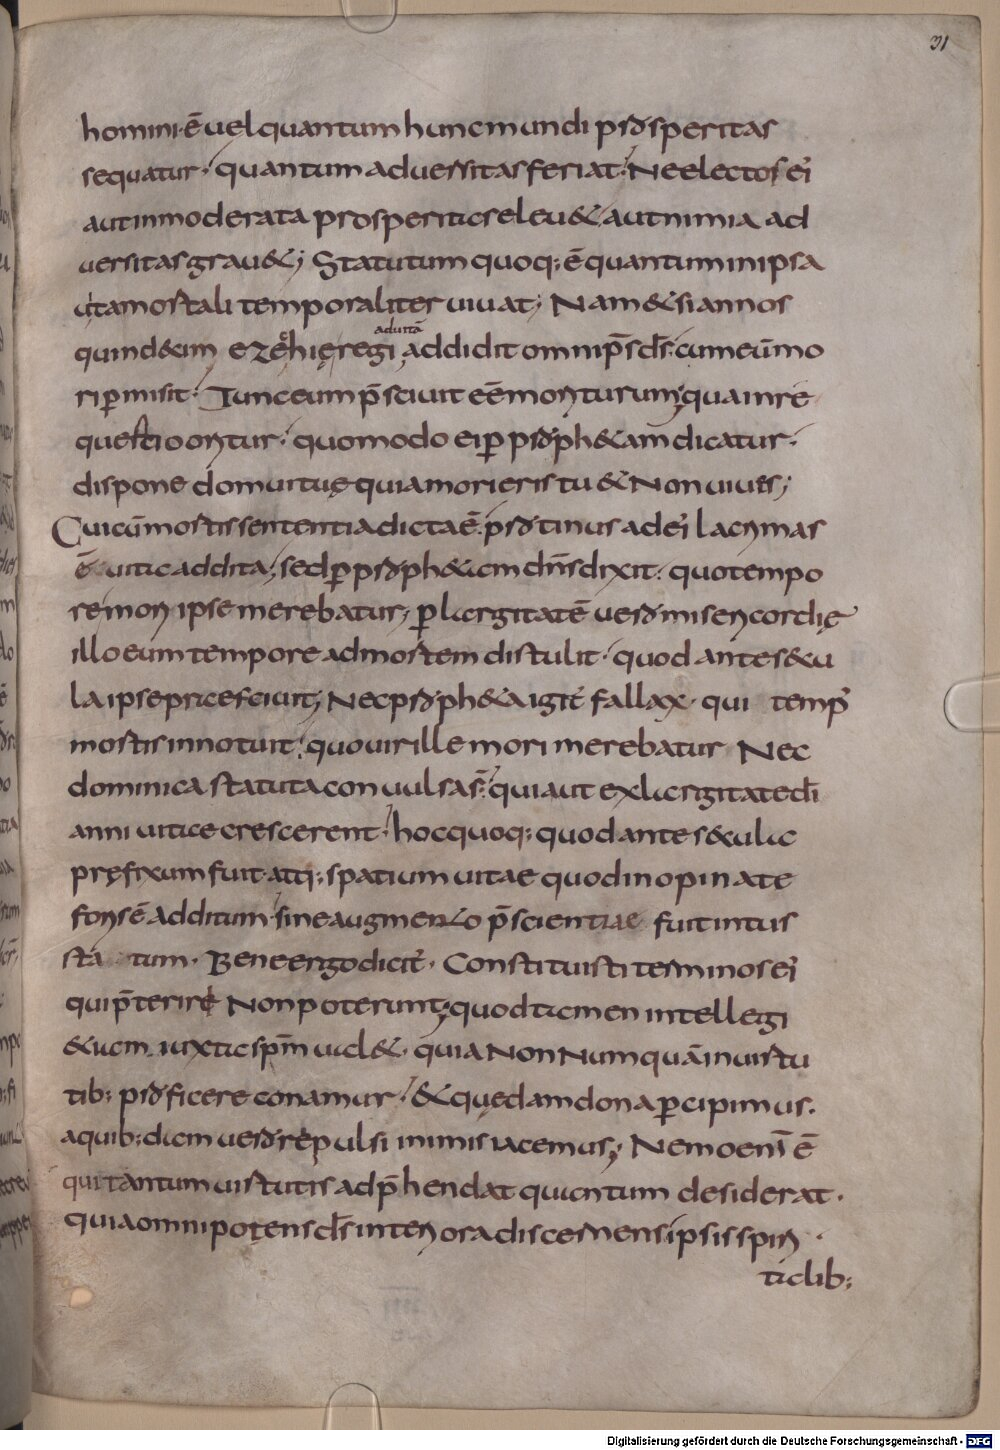 31
homini ē uel quantum hunc mundi prosperitas
sequatur · quantum aduersitas feriat · Ne electos ei'
aut inmoderata prosperitas eleu& aut nimia ad
uersitas grau&; Statutum quoq; ē quantum in ipsa
uita mortali temporaliter uiuat; Nam & si annos
aduitā
quind&im ezęchię regi addidit omnip̄s d̄s · cum eū mo
ri p̱misit · Tunc eum p̄sciuit eē moriturum; qua in re
questio oritur · quomodo ei p̱ proph&am dicatur ·
dispone domui tuę quia morieris tu & Non uiues;
Cui cū mortis sententia dicta ē · protinus ad ei' lacrymas
ē uita addita; sed p̱ proph&am dn̄s dixit · quo tempo
re mori ipse merebatur; p̱ largitatē uero misericordię
illo eum tempore ad mortem distulit · quod ante s&u
la ipse praesciuit; Nec proph&a igit' fallax · qui temp'
mortis innotuit · quo uir ille mori merebatur Nec
dominica statuta conuulsa s̄ · quia ut ex largitate d̄i
anni uitae crescerent · hoc quoq; quod ante s&ula
pręfixum fuit atq; spatium uitae quod inopinate
foris ē additum sine augmento p̄scientiae fuit intus
sta tum · Bene ergo dicit' · Constituisti terminos ei'
qui p̄terire Non poterunt; quod tamen intellegi
&iam iuxta sp̄m ual& · quia Non Numquā in uirtu
tib; proficere conamur · & quędam dona p̱cipimus ·
a quib;dam uero repulsi in imis iacemus; Nemo eni ē
qui tantum uirtutis adp̄hendat quantum desiderat ·
quia omnipotens d̄s interiora discernens ipsis spiri ·
talib;
Digitalisierung gefördert durch die Deutsche Forschungsgemeinschaft - DFG